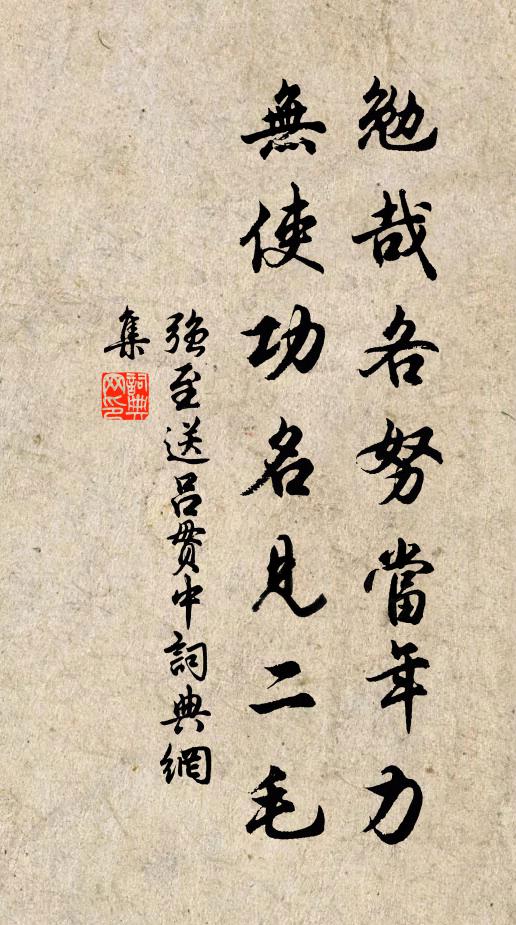 勉哉各努當年力
無使功名見二毛
強至送呂貫中詞典網
集
詞典
网印